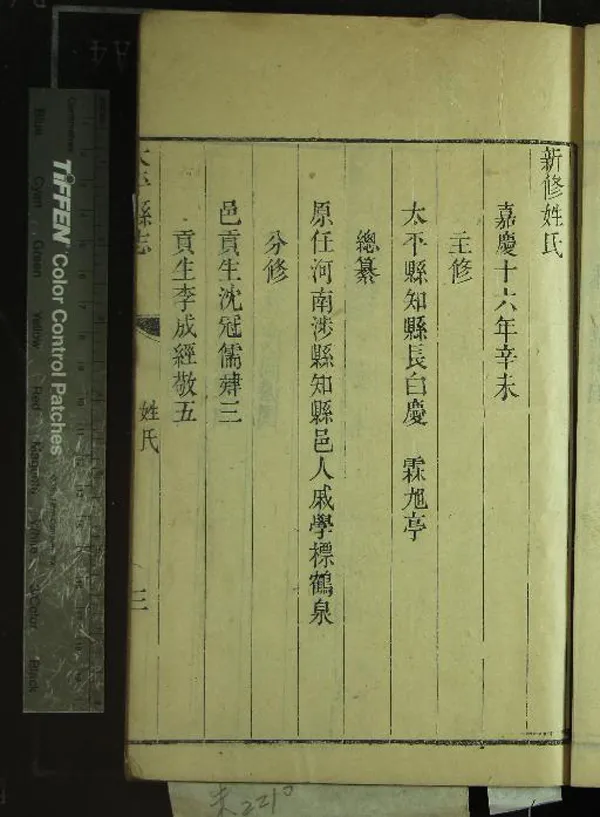 新修姓氏
嘉慶十六年辛未
主修
太平縣知縣長白慶 霖旭亭
總纂
原任河南涉縣知縣邑人戚學標鶴泉
分修
邑貢生沈冠儒肄三
貢生李成經敬五
太平縣志 姓氏 三
TIFFEN Color Control Patches
Blue Cyan Green Yellow Red Magenta White 3/Color Black